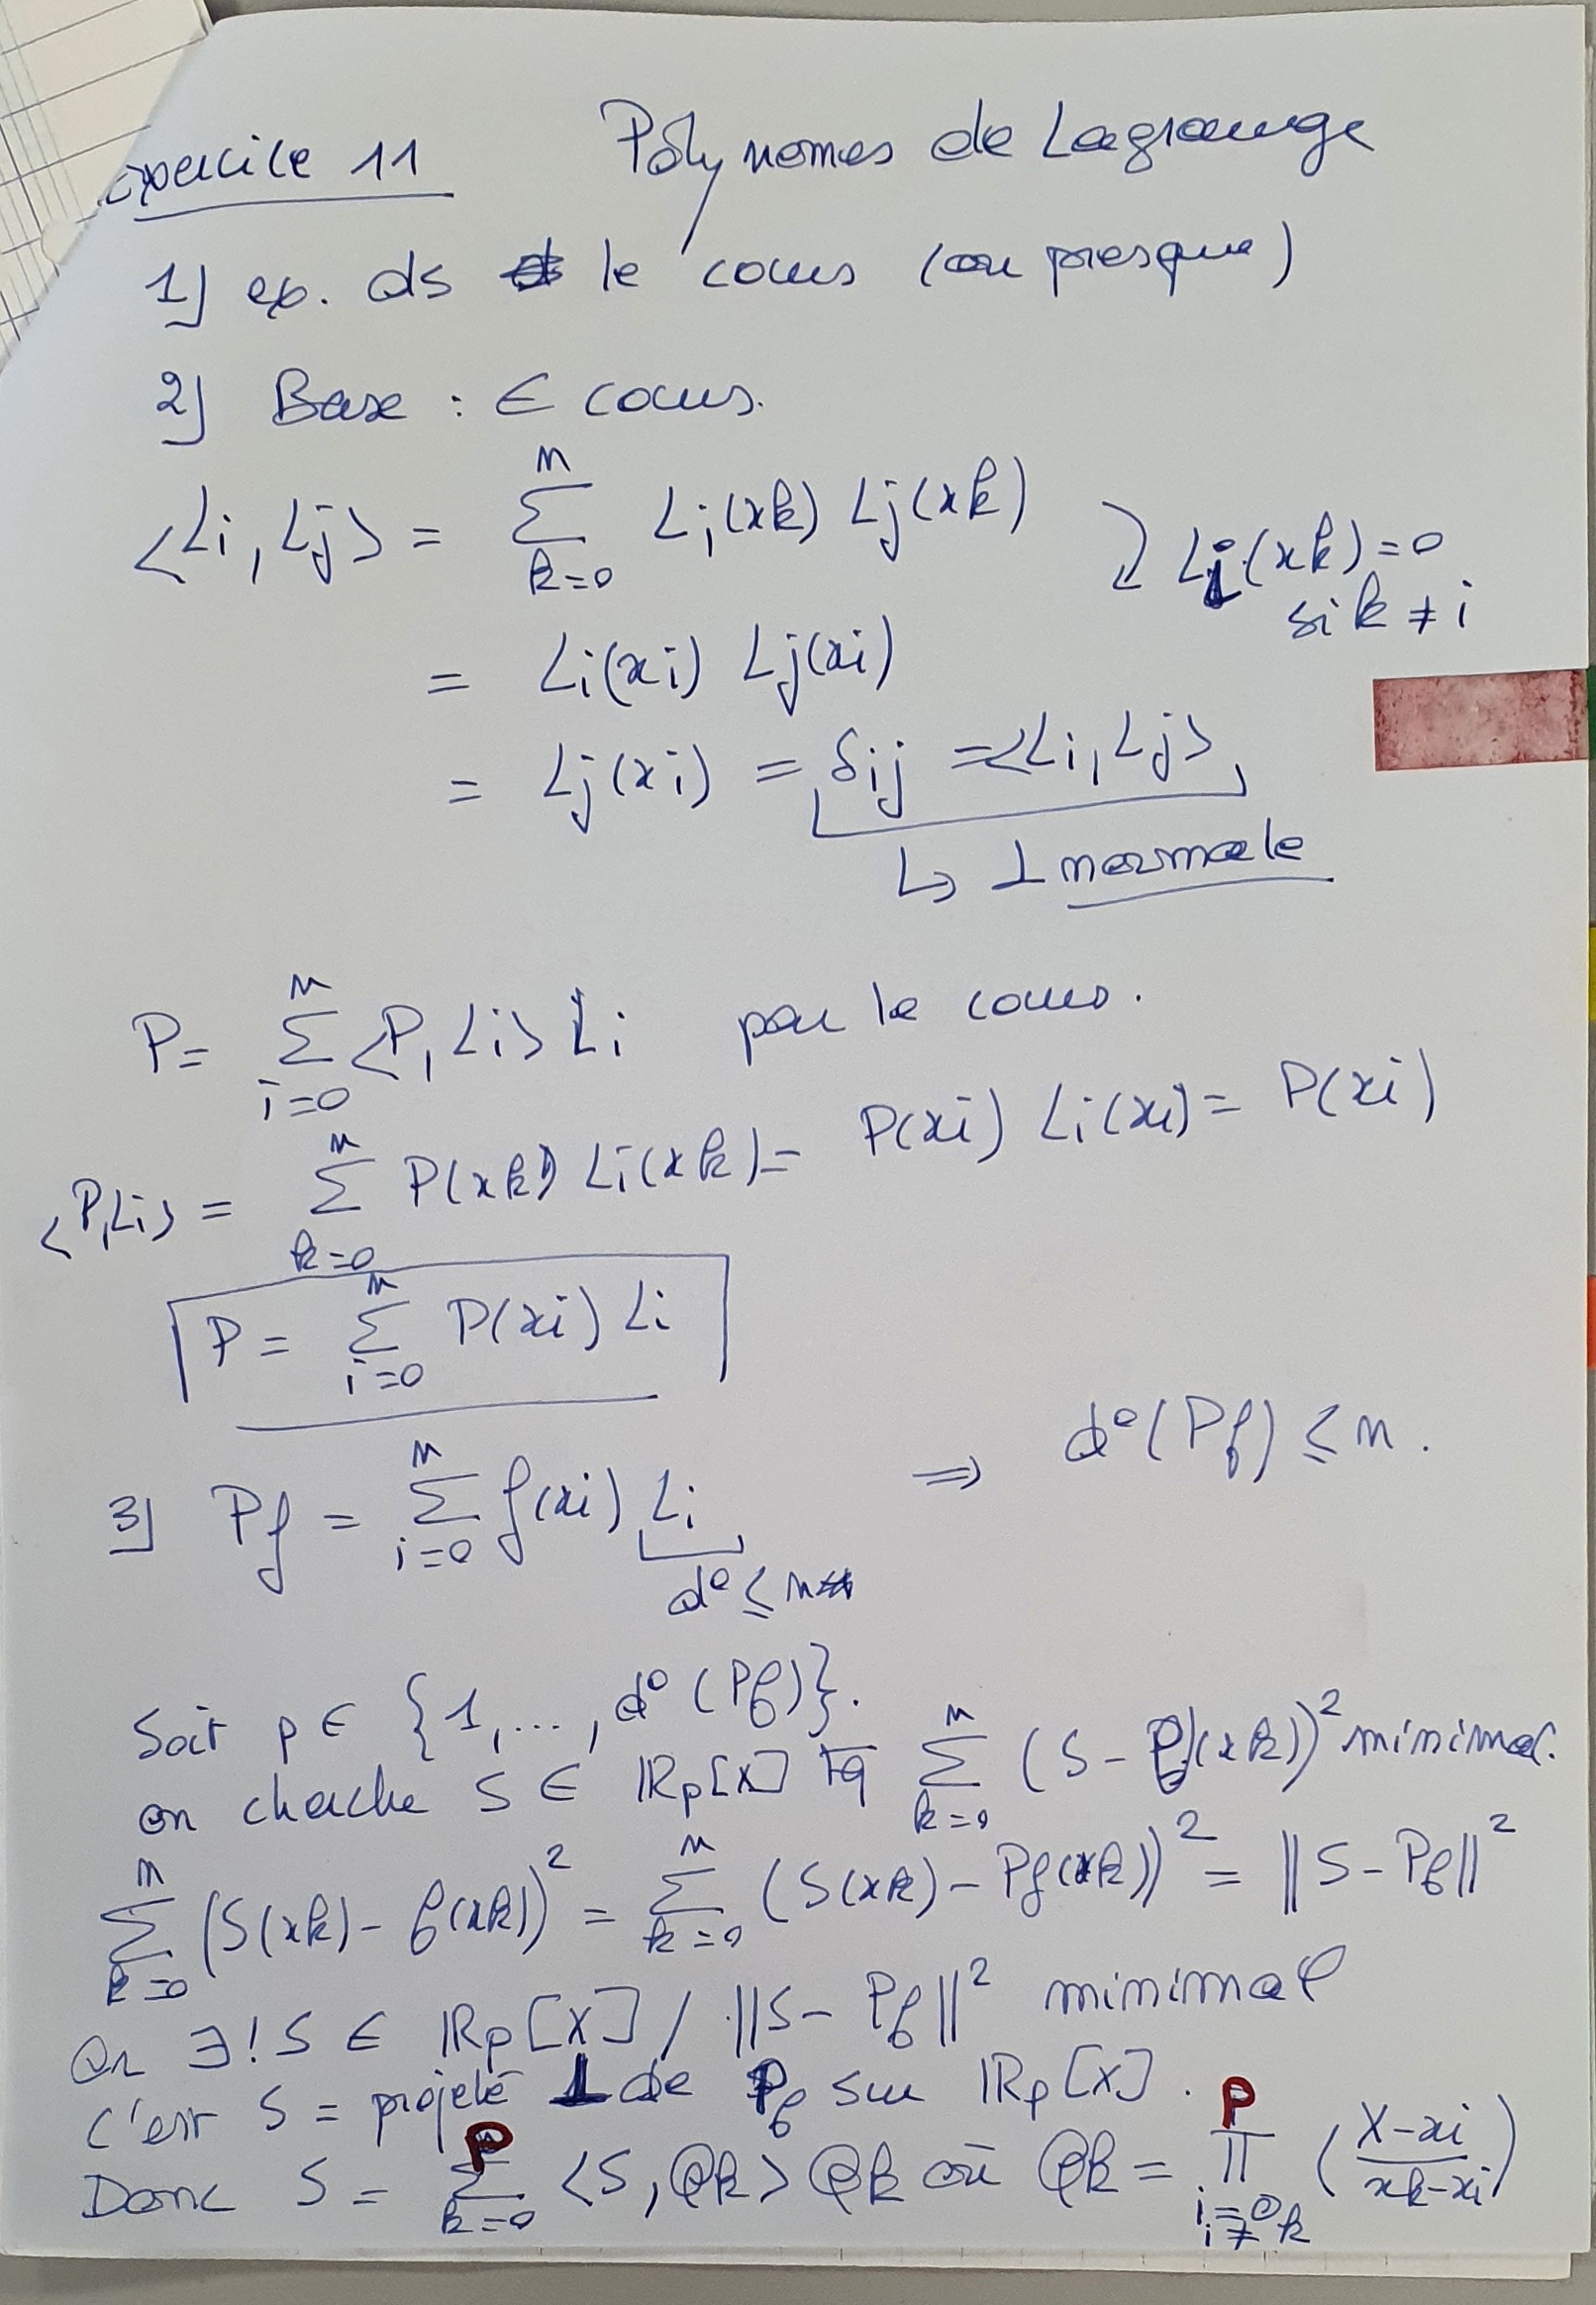 Exercice 11 Polynomes de Lagrange
1) ex. ds le cours (ou presque)
2) Base : ∈ cours.
<Li, Lj> = Σ_{k=0}^{n} Li(xk) Lj(xk) ⤵ Li(xk)=0 si k ≠ i
= Li(xi) Lj(xi)
= Lj(xi) = δij = <Li, Lj>
↳ ⊥ normale
P = Σ_{i=0}^{n} <P, Li> Li par le cours.
<P,Li> = Σ_{k=0}^{n} P(xk) Li(xk) = P(xi) Li(xi) = P(xi)
P = Σ_{i=0}^{n} P(xi) Li
3) Pf = Σ_{i=0}^{n} f(xi) Li ⟹ d°(Pf) ≤ n.
d° ≤ n
Soit p ∈ {1,..., d°(Pf)}.
on cherche S ∈ ℝp[X] tq Σ_{k=0}^{n} (S - f)(xk))² minimal.
Σ_{k=0}^{n} (S(xk) - f(xk))² = Σ_{k=0}^{n} (S(xk) - Pf(xk))² = ||S - Pf||²
Or ∃! S ∈ ℝp[X] / ||S - Pf||² minimal
c'est S = projeté ⊥ de Pf sur ℝp[X].
Donc S = Σ_{k=0}^{p} <S, Qk> Qk où Qk = Π_{i=0, i≠k}^{p} (X-xi / xk-xi)